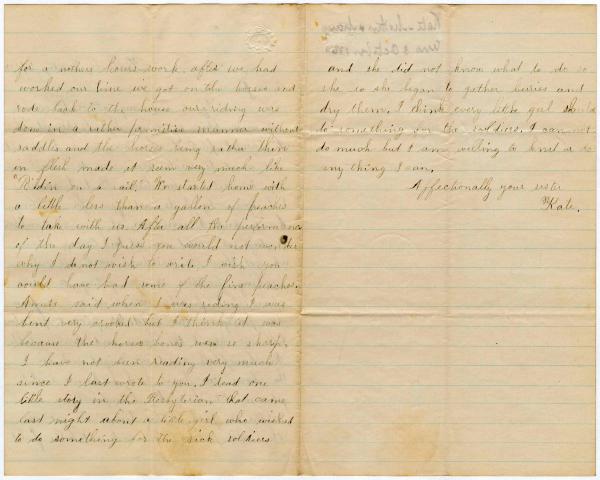 for a nothers hours work. after we had
worked our time we got on the horses and
rode back to the house our riding was
done in a rather primitive manner without
saddles and the horses being rather thin
in flesh made it seem very much like
"Riden on a rail". We started home with
a little less than a gallon of peaches
to take with us After all the performance
of the day I guess you would not wonder
why I do not wish to write I wish you
could have had some of the fine peaches.
said when I was riding I was
bent very crooked but I think it was
because the horses bones were so sharp.
I have not been reading very much
since I last wrote to you. I read one
little story in the Presbyterian that came
last night about a little girl who wished
to do something for the sick soldiers
and she did not know what to do so
she so she began to gether berries and
dry them. I think every little girl should
do something for the soldiers. I can not
do much but I am willing to knit or do
any thing I can.
Affectionally your sister
Kate.